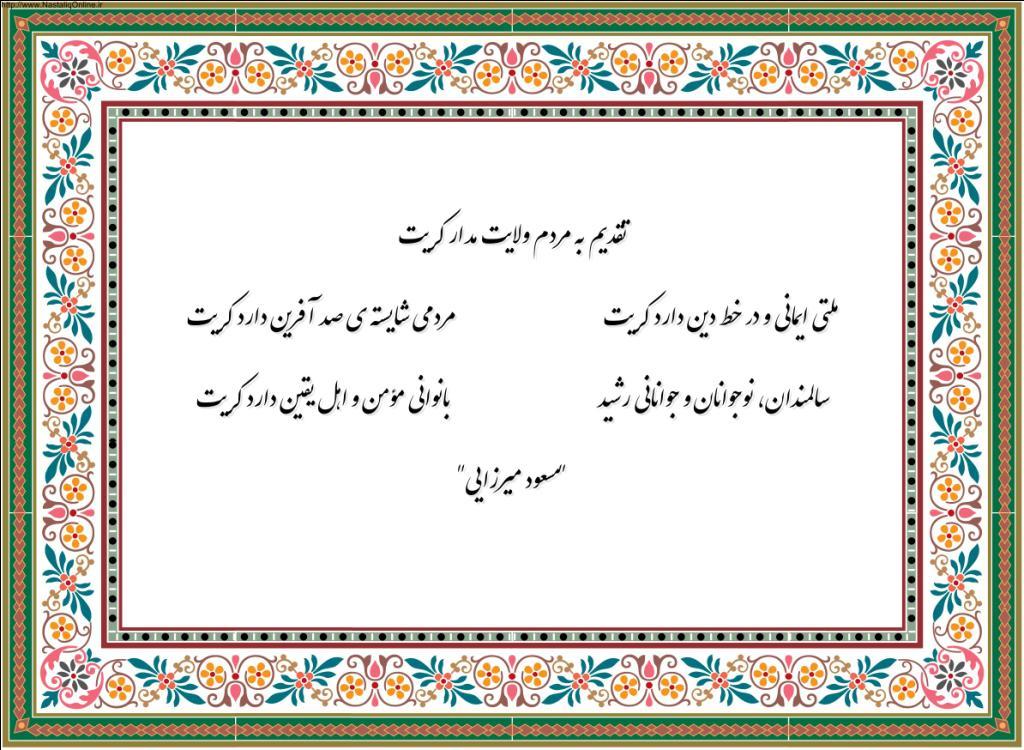 http://www.NastaliqOnline.ir
تقدیم به مردم ولایت مدار کریت
ملتی ایمانی و در خط دین دارد کریت مردمی شایسته ی صد آفرین دارد کریت
سالمندان، نوجوانان و جوانانی رشید بانوانی مؤمن و اهل یقین دارد کریت
"مسعود میرزایی"